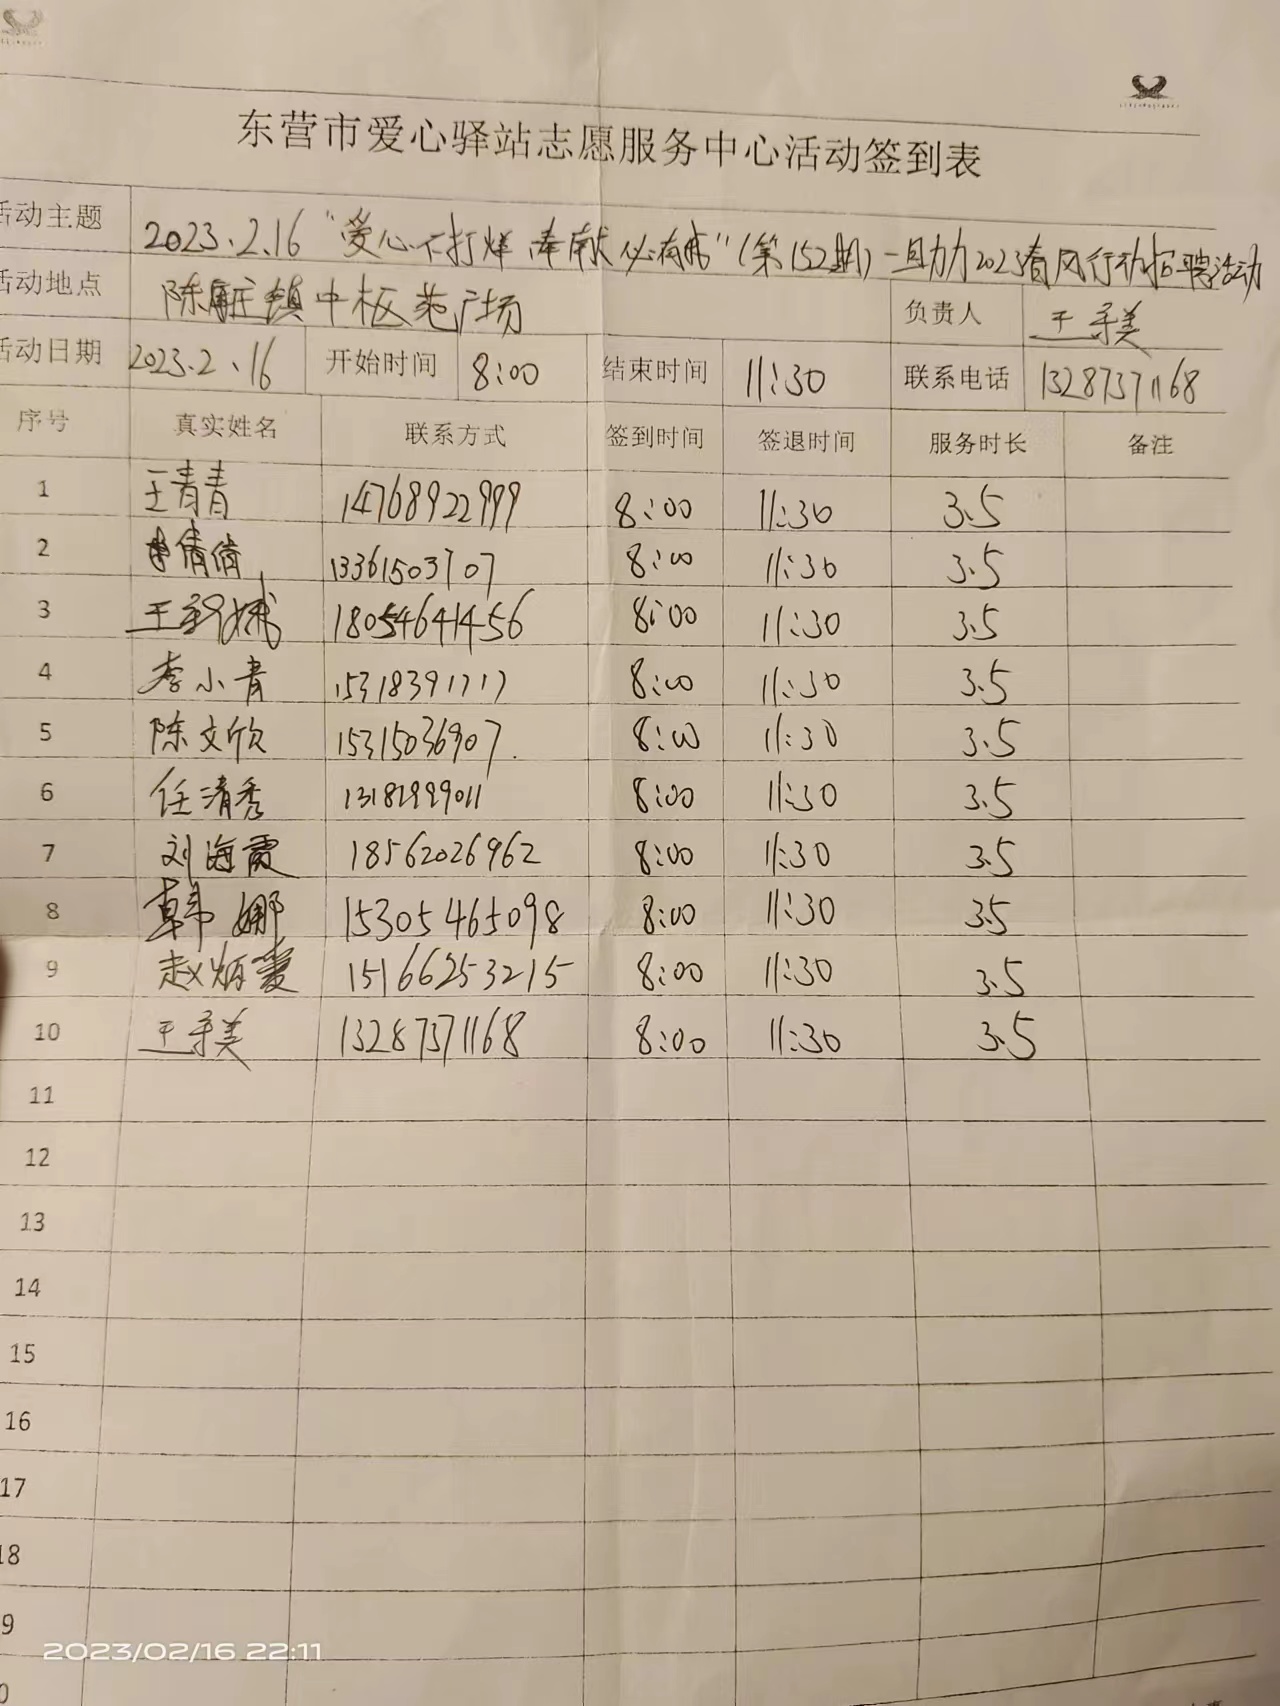 东营市爱心驿站志愿服务中心活动签到表
活动主题 2023.2.16 "爱心不打烊 奉献必有我"(第152期)—助力2023春风行动招聘活动
活动地点 陈庄镇中枢苑广场 负责人 王美
活动日期 2023.2.16 开始时间 8:00 结束时间 11:30 联系电话 13287371168
序号 真实姓名 联系方式 签到时间 签退时间 服务时长 备注
1 王青青 14768922999 8:00 11:30 3.5
2 倩倩 13361503707 8:00 11:30 3.5
3 王 18054641456 8:00 11:30 3.5
4 李小青 15318391717 8:00 11:30 3.5
5 陈文欣 15315036907 8:00 11:30 3.5
6 任清秀 13181999011 8:00 11:30 3.5
7 刘海霞 18562026962 8:00 11:30 3.5
8 韩娜 15305465098 8:00 11:30 3.5
9 赵炳霞 15166253215 8:00 11:30 3.5
10 王美 13287371168 8:00 11:30 3.5
11
12
13
14
15
16
17
18
9
0
2023/02/16 22:11